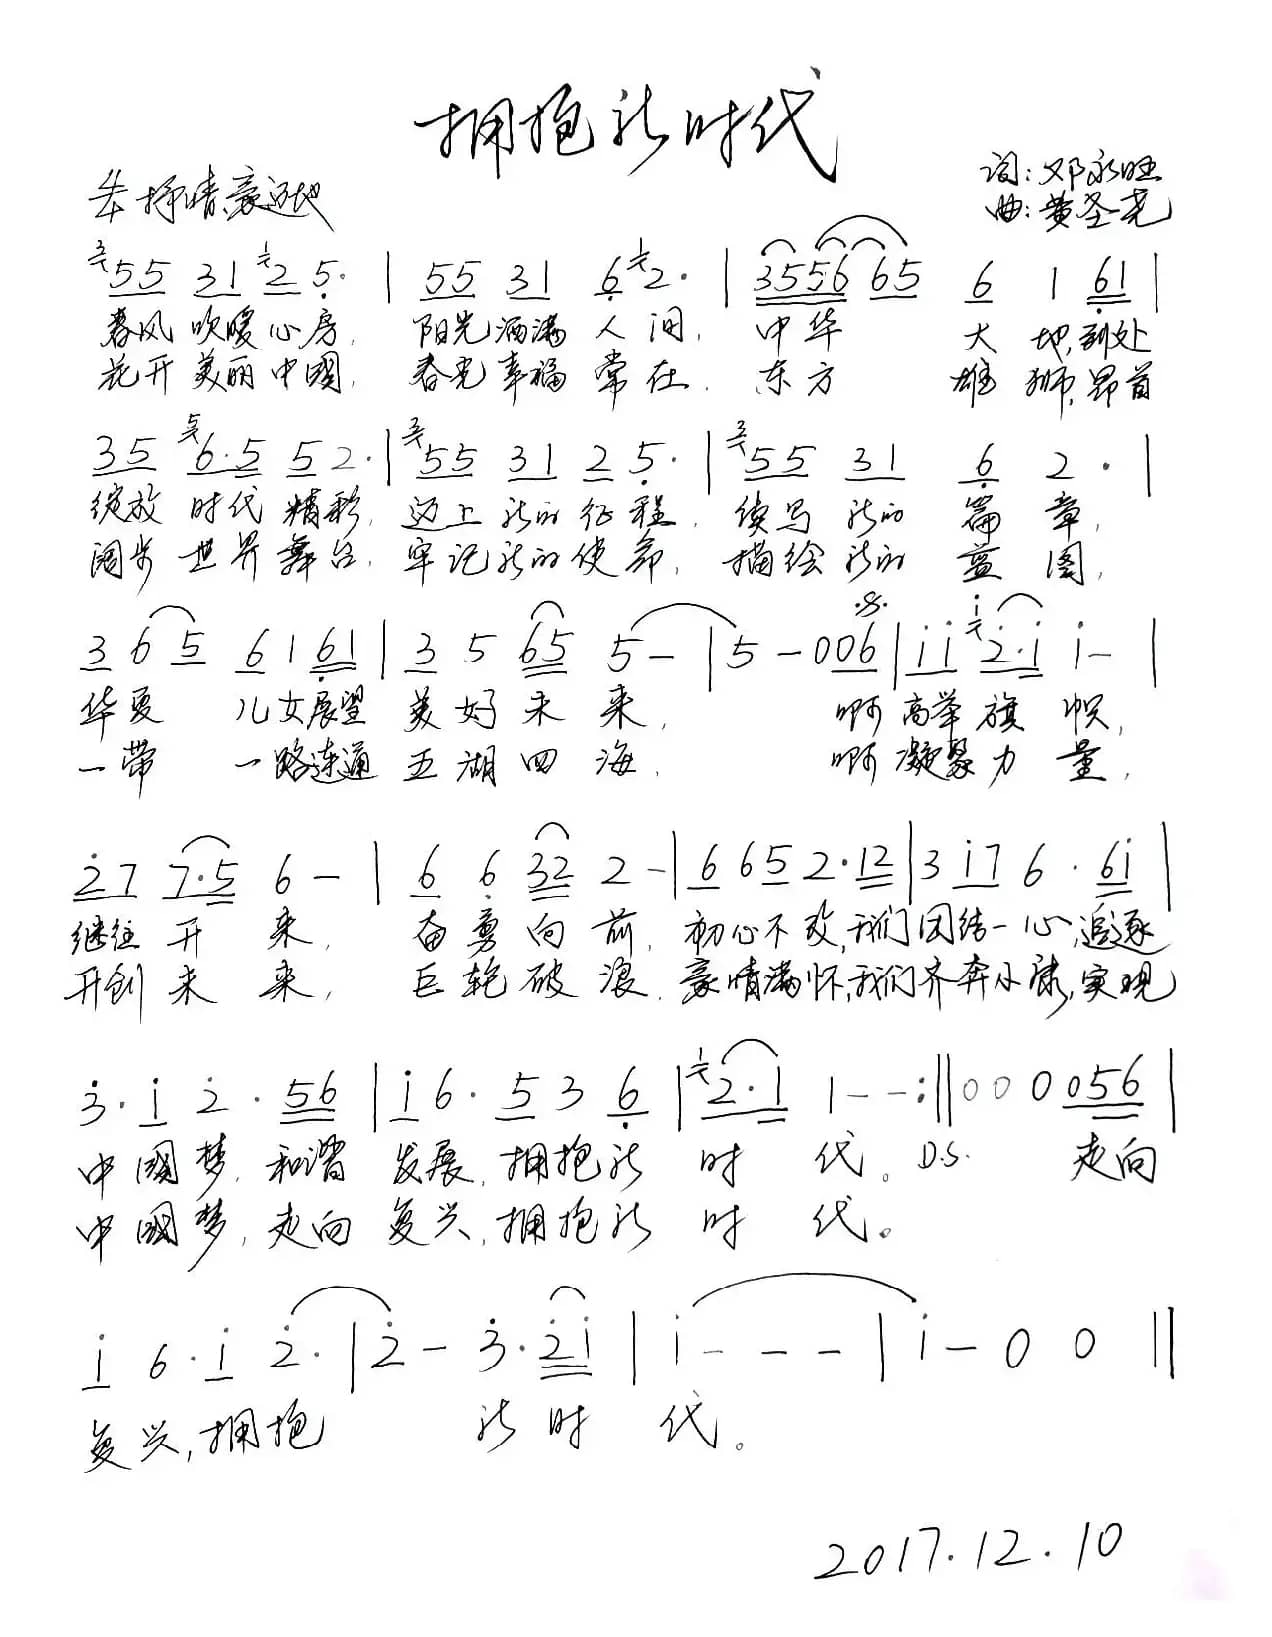 拥抱新时代
抒情、豪迈地
词:邓永旺
曲:黄圣尧
55 31 2 5· | 55 31 6 2· | 3556 65 6 1 61 |
春风吹暖心房, 阳光洒满人间, 中华大地,到处
花开美丽中國, 春光幸福常在, 东方雄狮,昂首
35 6·5 5 2· | 55 31 2 5· | 55 31 6 2· |
绽放时代精彩, 迈上新的征程, 续写新的篇章,
阔步世界舞台, 牢记新的使命, 描绘新的蓝图,
3 6 5 6 1 61 | 3 5 65 5 – | 5 – 0 06 | ii 2·i i – |
华夏儿女展望美好未来, 啊高举旗帜,
一带一路连通五湖四海, 啊凝聚力量,
27 7·5 6 – | 6 6 32 2 – | 6 65 2·12 | 3 i7 6·6i |
继往开来, 奋勇向前, 初心不改,我们团结一心,追逐
开创未来, 巨轮破浪, 豪情满怀,我们齐奔小康,实现
3·i 2·56 | i 6·5 3 6 | 2·i 1 – – :|| 0 0 0 056 |
中國梦,和谐发展,拥抱新时代。 D.S. 走向
中國梦,走向复兴,拥抱新时代。
i 6·i 2· | 2 – 3·2i | i – – – | i – 0 0 ||
复兴,拥抱新时代。
2017.12.10